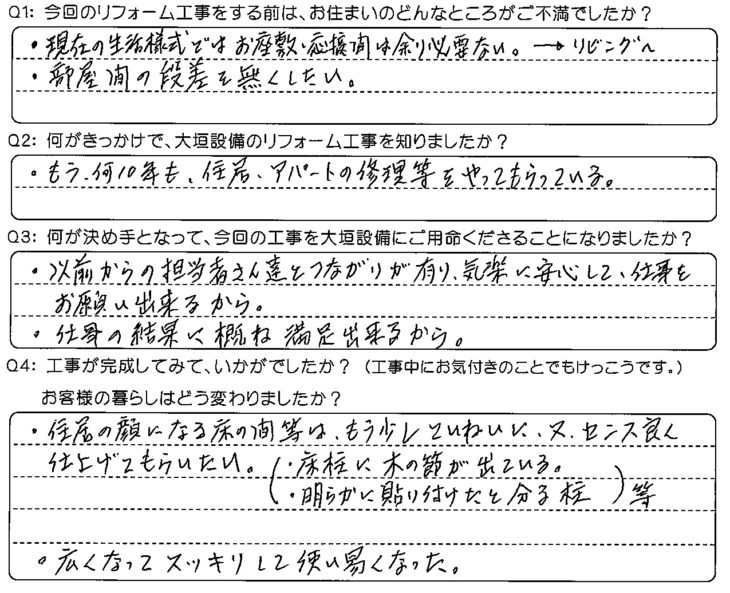 Q1: 今回のリフォーム工事をする前は、お住まいのどんなところがご不満でしたか？
・現在の生活様式ではお座敷・応接間は余り必要ない。→リビングへ
・部屋間の段差を無くしたい。
Q2: 何がきっかけで、大垣設備のリフォーム工事を知りましたか？
・もう、何10年も、住居、アパートの修理等をやってもらっている。
Q3: 何が決め手となって、今回の工事を大垣設備にご用命くださることになりましたか？
・以前からの担当者さん達とつながりが有り、気楽に安心して、仕事を
お願い出来るから。
・仕事の結果に概ね満足出来るから。
Q4: 工事が完成してみて、いかがでしたか？（工事中にお気付きのことでもけっこうです。）
お客様の暮らしはどう変わりましたか？
・住居の顔になる床の間等は、もう少していねいに、又、センス良く
仕上げてもらいたい。（・床柱に木の節が出ている。
・明らかに貼り付けたと分る柱）等
・広くなってスッキリして使い易くなった。